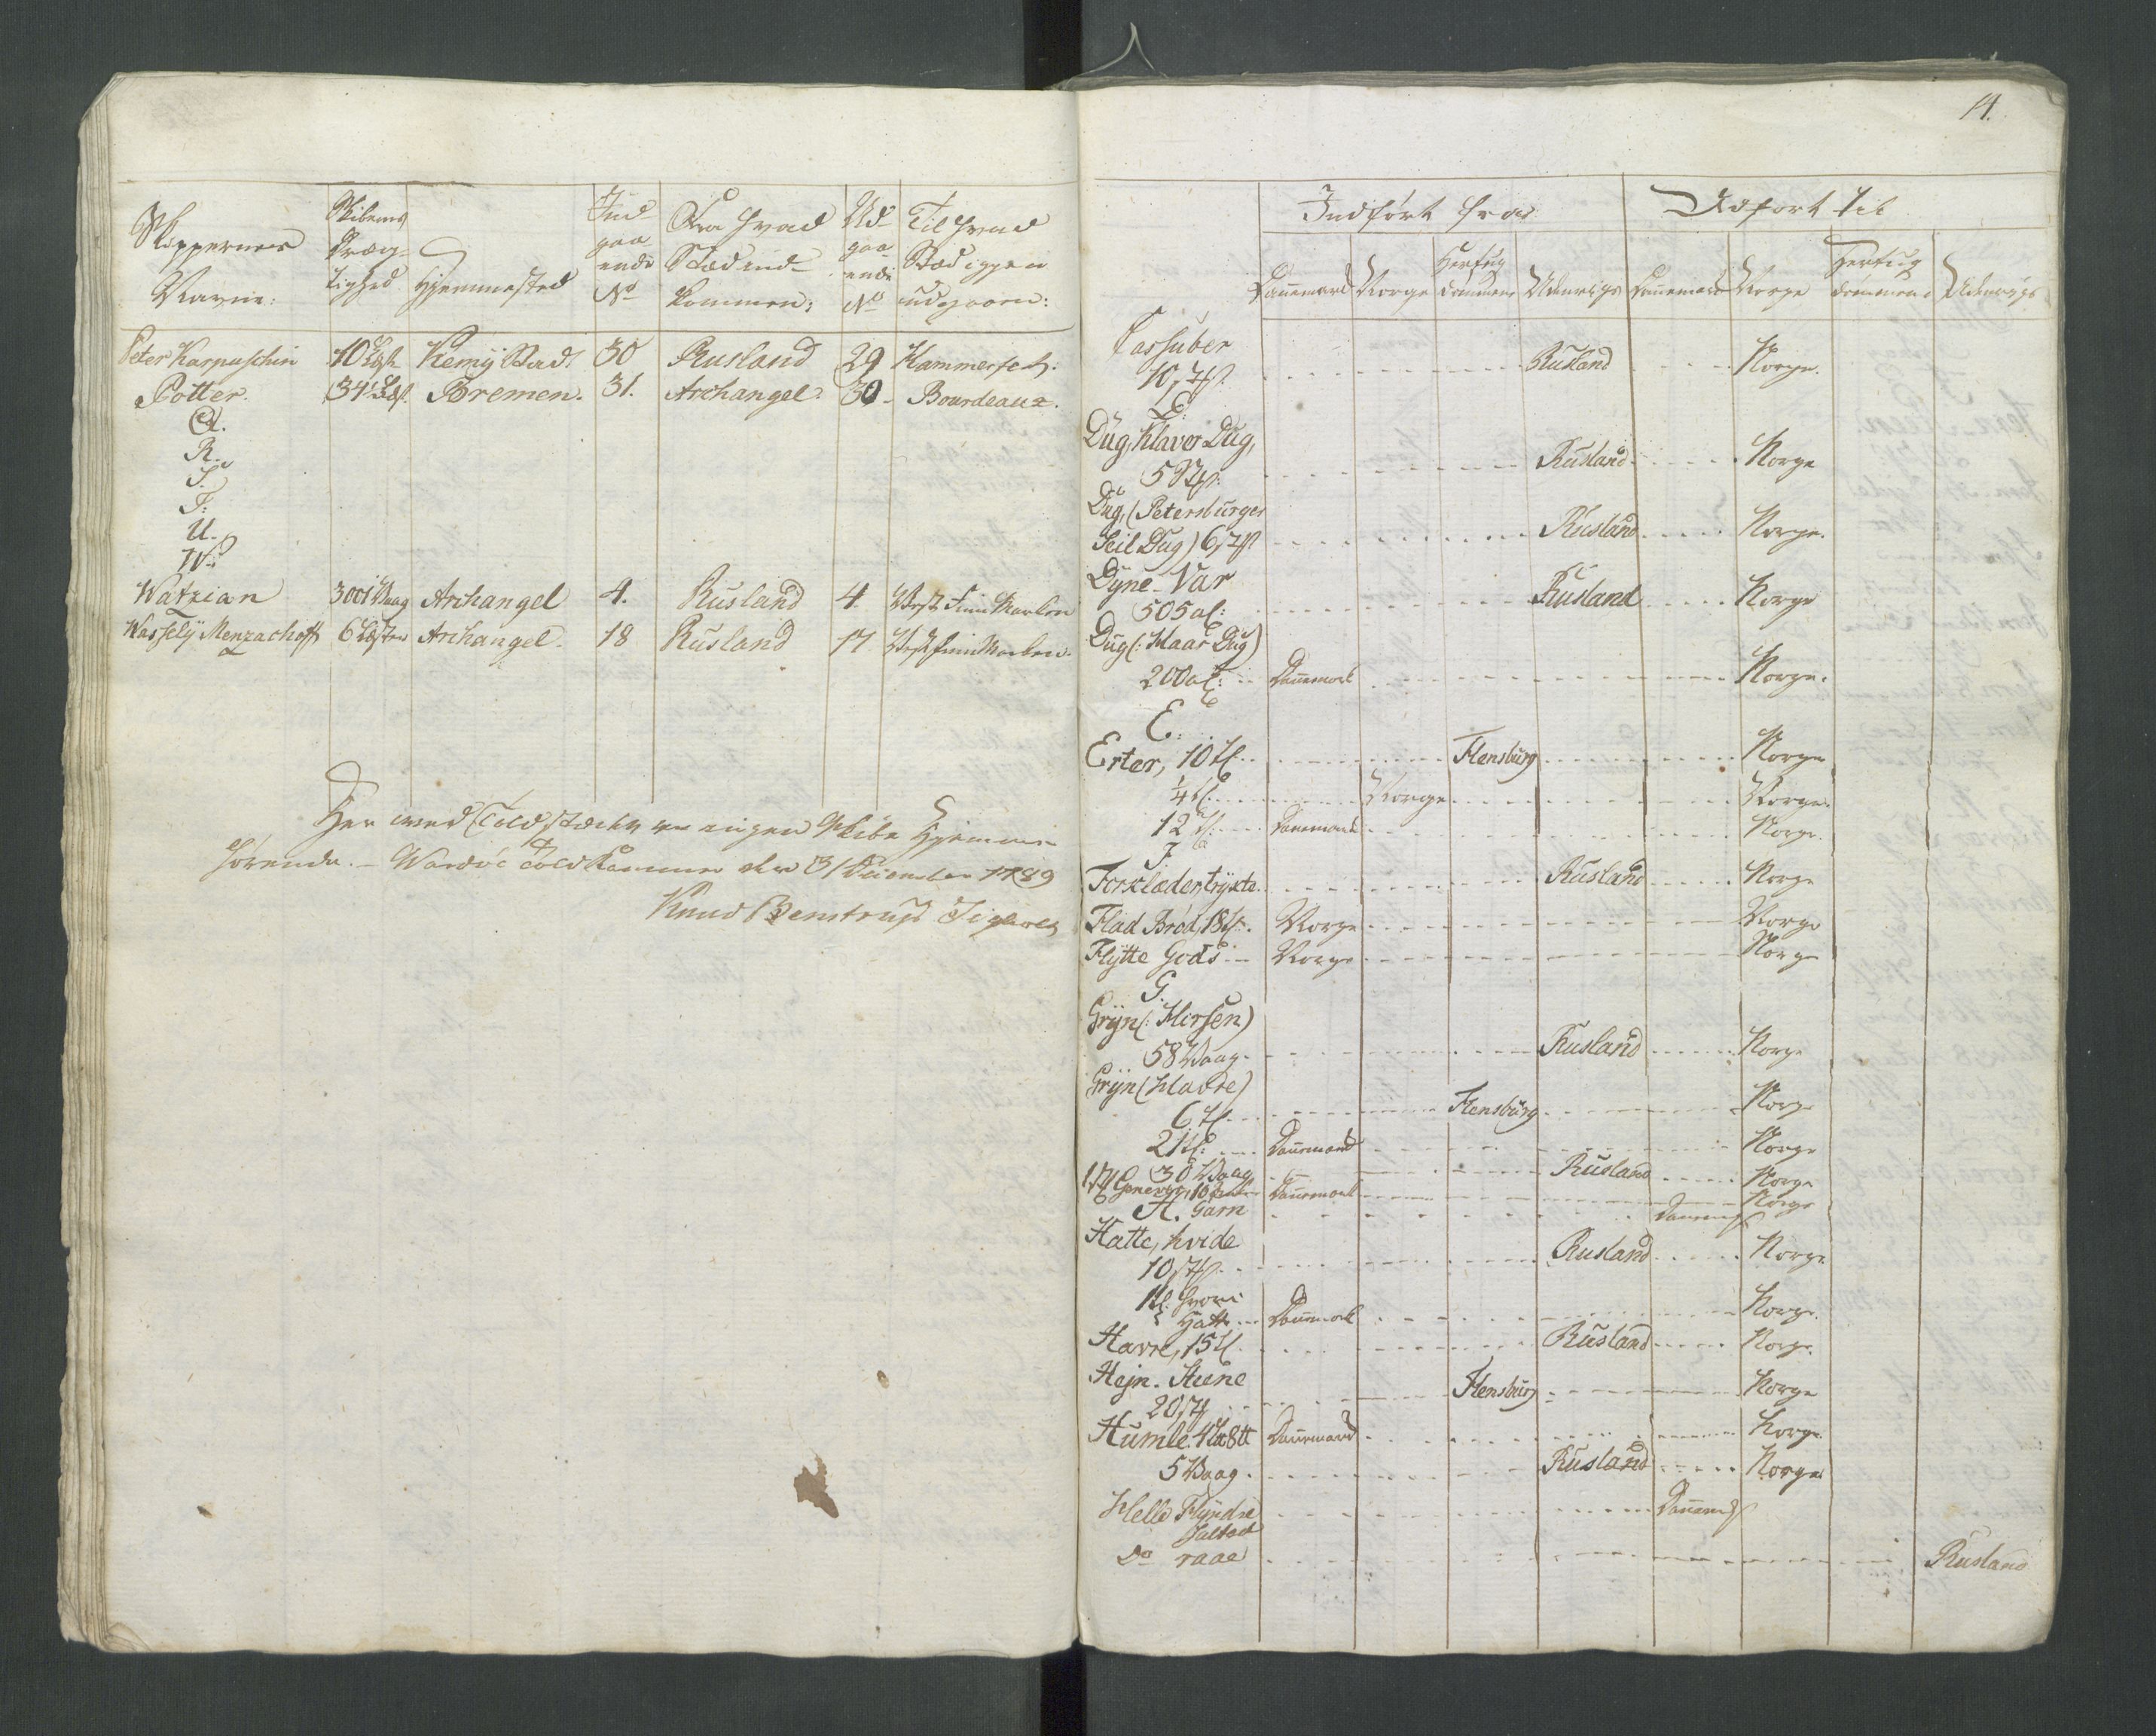 Skippernes Navne:
Skibens Dræg-tighed
Hjemmested
Ind-gaa-ende No
Fra hvad Stæd ind-kommen:
Ud-gaa-ende No
Til hvad Stæd igien udgaaen:
Peter Karpuschin 10 Læst Kemij Stad 30 Rusland 29 Hammerfest:
Potter. 34½ Læst. Bremen. 31. Archangel. 30 Bourdeaux.
Q.
R.
S.
T:
U.
W:
Watzian 300 Waag Archangel 4. Rusland 4. West Finmarken
Wassely Menzachoff 6 Læster Archangel. 18 Rusland 17. West Finmarken.
Her ved Toldstædet er ingen Skibe Hjemme
hørende. - Wardöe Told Kammer den 31 December 1789
Knud Benstrup
14.
Indført fra
Udført til
Dannemark Norge Hertug dømmene Udenrigs Dannemark Norge Hertug dømmene Udenrigs
10 st. Rusland Norge.
D.
Dug, Klaver Dug,
5 St: Rusland Norge
Dug, (Petersburger
Seil Dug) 6 st Rusland Norge.
Dyne-Var
505 al: Rusland Norge
Dug (: Haar Dug)
200 al: Dannemark Norge.
E.
Erter, 10 t. Flensburg Norge
¼ t. Norge Norge.
12 t: Dannemark Norge.
F.
Forklæder, trykte. Rusland Norge
Flad Brød, 18 t. Norge Norge
Flytte Gods Norge Norge
G.
Gryn (: Hirsen)
58 Waag. Rusland Norge
Gryn (Havre)
6 t. Flensburg Norge
2 t: Dannemark Norge
30 Waag Rusland Norge
Dannemark Norge
H. Garn Dannemark
Hatte, hvide
10 st. Rusland Norge.
Hatte Dannemark Norge.
Havre, 15 t. Rusland Norge.
Hejn. Steene
20 st Flensburg Norge
Humle. Dannemark Norge.
5 Waag. Rusland Norge
Helle Flyndre
saltet Dannemark
Do raae Rusland